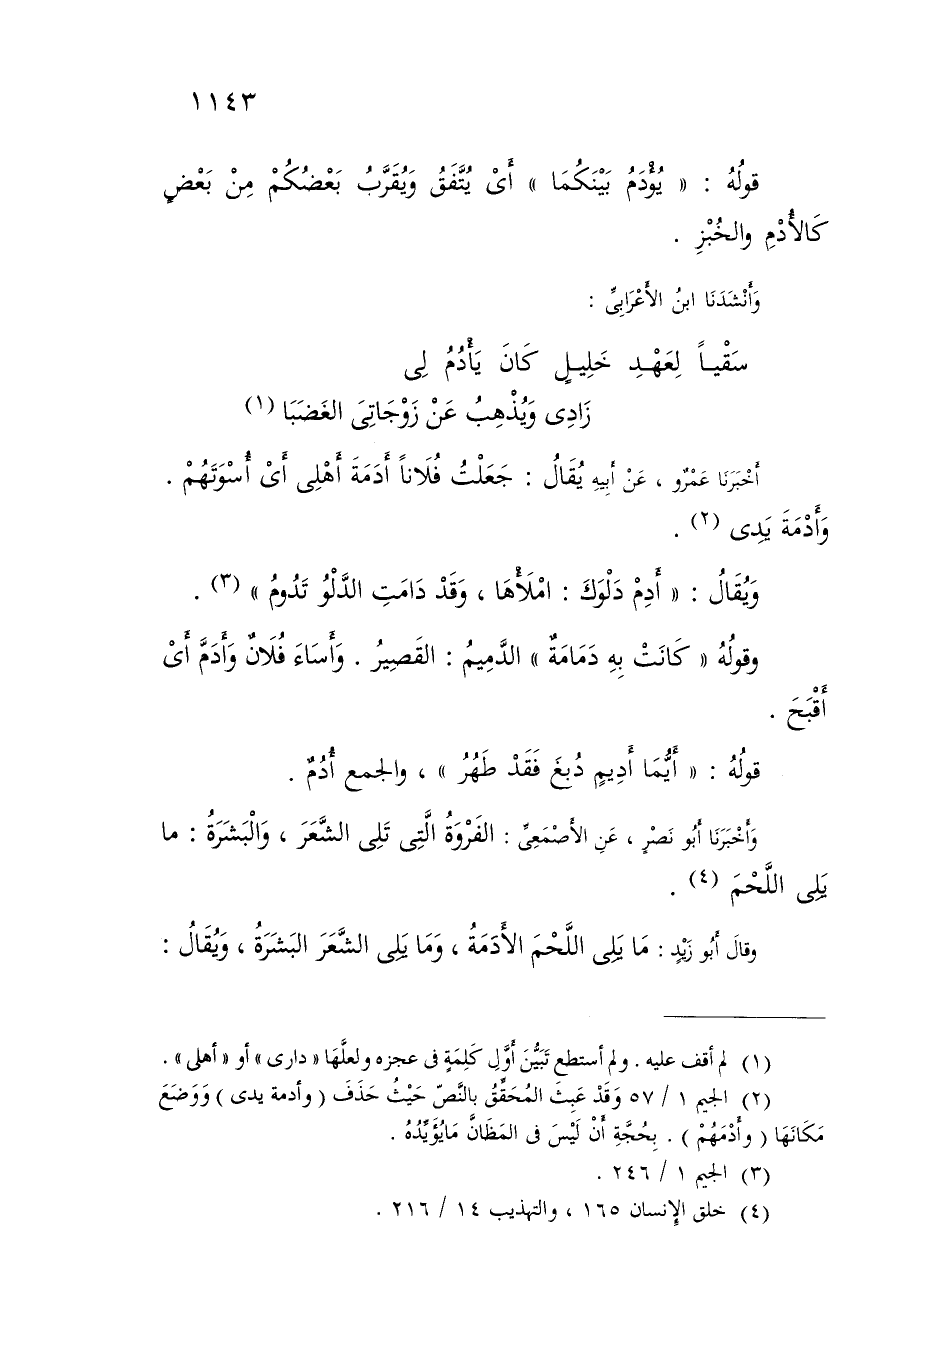 ١١٤٣
قولُهُ : « يُؤْدَمُ بَيْنَكُمَا » أَىْ يُتَّفَقُ وَيُقَرَّبُ بَعْضُكُمْ مِنْ بَعْضٍ
كَالأُدْمِ والخُبْزِ .
وَأَنْشَدَنَا ابنُ الأَعْرَابِىِّ :
سَقْيـاً لِعَهْـدِ خَلِيـلٍ كَانَ يَأْدُمُ لِى
زَادِى وَيُذْهِبُ عَنْ زَوْجَاتِىَ الغَضَبَا (١)
أَخْبَرَنَا عَمْرٌو ، عَنْ أَبِيهِ يُقَالُ : جَعَلْتُ فُلَاناً أَدَمَةَ أَهْلِى أَىْ أُسْوَتَهُمْ .
وَأَدْمَةَ يَدِى (٢) .
وَيُقَالُ : « أَدِمْ دَلْوَكَ : امْلَأْهَا ، وَقَدْ دَامَتِ الدَّلْوُ تَدُومُ » (٣) .
وقولُهُ « كَانَتْ بِهِ دَمَامَةٌ » الدَّمِيمُ : القَصِيرُ . وَأَسَاءَ فُلَانٌ وَأَدَمَّ أَىْ
أَقْبَحَ .
قولُهُ : « أَيُّمَا أَدِيمٍ دُبِغَ فَقَدْ طَهُرُ » ، والجمع أُدُمٌ .
وَأَخْبَرَنَا أَبُو نَصْرٍ ، عَنِ الأَصْمَعِىِّ : الفَرْوَةُ الَّتِى تَلِى الشَّعَرَ ، وَالْبَشَرَةُ : ما
يَلِى اللَّحْمَ (٤) .
وقالَ أَبُو زَيْدٍ : مَا يَلِى اللَّحْمَ الأَدَمَةُ ، وَمَا يَلِى الشَّعَرَ البَشَرَةُ ، وَيُقَالُ :
(١) لم أقف عليه . ولم أستطع تَبَيُّنَ أَوَّلِ كَلِمَةٍ فى عجزه ولعلَّهَا « دارى » أو « أهلى » .
(٢) الجيم ١ / ٥٧ وَقَدْ عَبِثَ المُحَقِّقُ بالنَّصّ حَيْثُ حَذَفَ ( وأدمة يدى ) وَوَضَعَ
مَكَانَهَا ( وأَدْمَهُمْ ) . بِحُجَّةِ أَنْ لَيْسَ فى المَظَانَّ مَايُؤَيِّدُهُ .
(٣) الجيم ١ / ٢٤٦ .
(٤) خلق الإنسان ١٦٥ ، والتهذيب ١٤ / ٢١٦ .